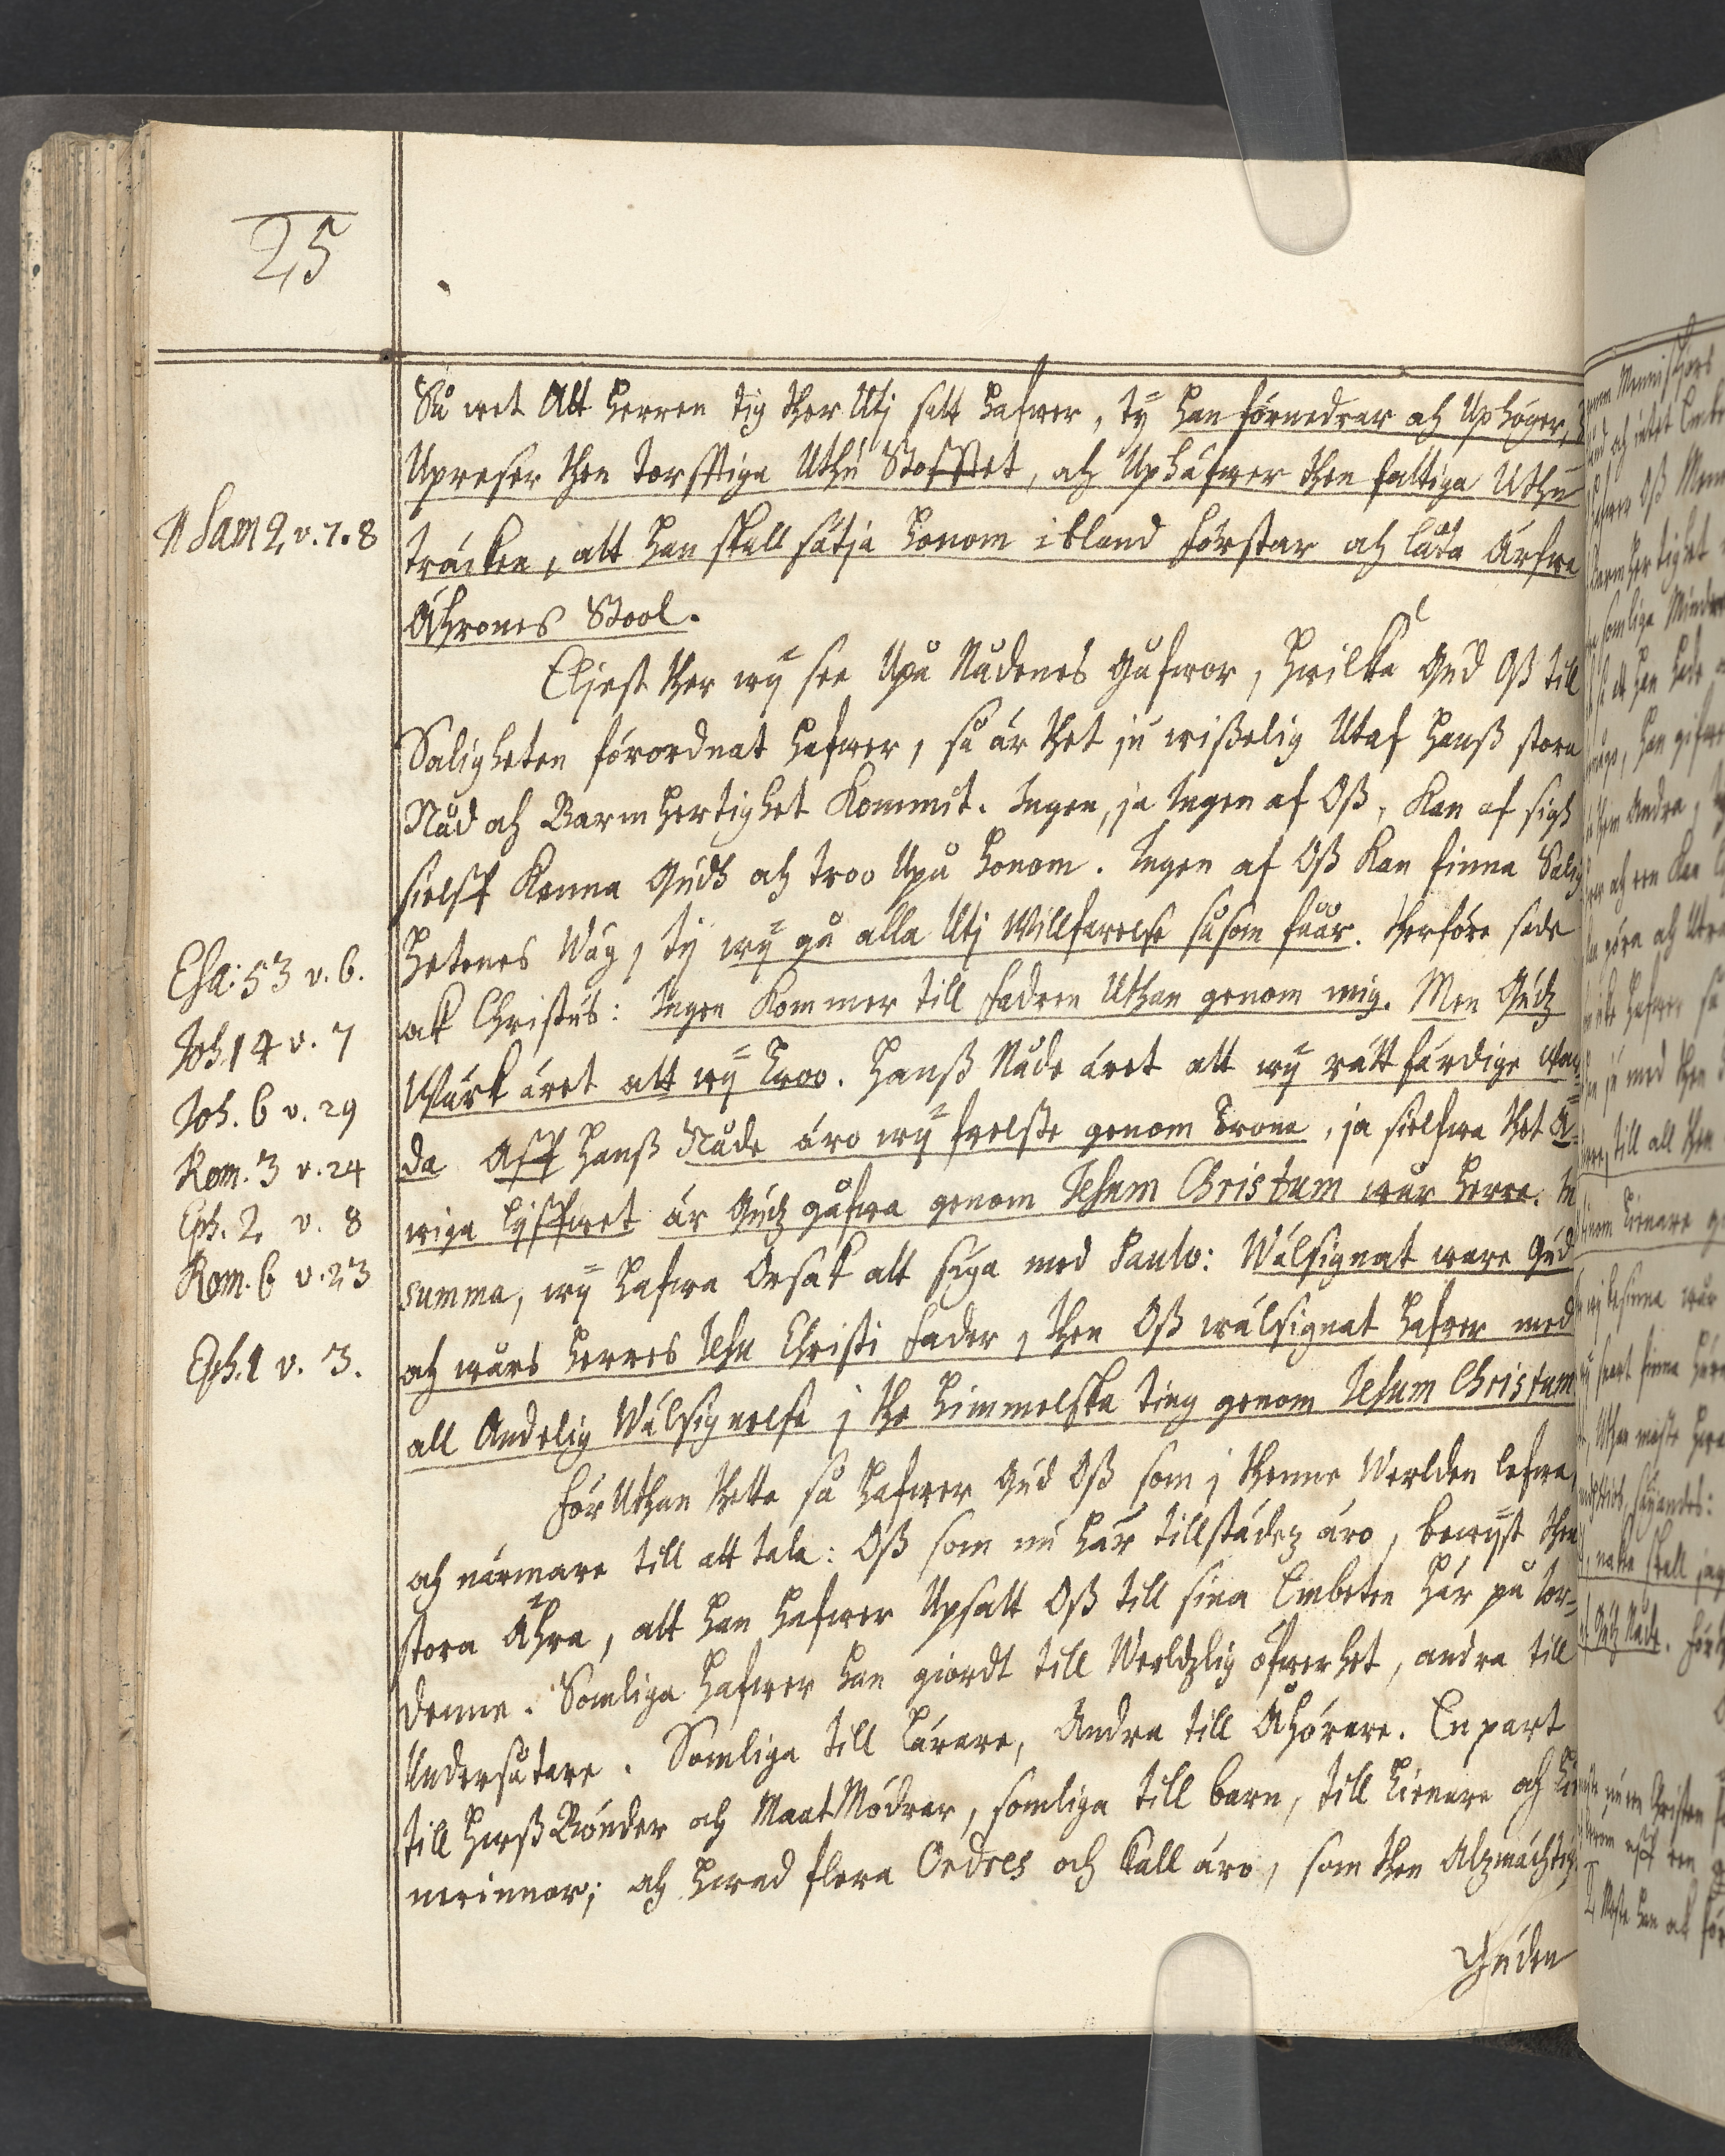 25
Så wet Att Herren tig ther Utj satt hafwer, ty han förnedrar och Uphöger,
Upreser then torfftiga Uthu Stofftet, och Uphäfwer then fattiga Uthu
1 Sam 2 v. 7. 8
träcken, att han skall sätja honom ibland Förstar och låta ärfwa
Ährones Stool.
Eljest ther wÿ see Upå Nådenes gåfwor, hwilka Gud Oß till
Saligheten förordnat hafwer, så är thet ju wißelig Utaf hanß stora
Nåd och Barmhertighet kommit. Ingen, ja Ingen af Oß, kan af sigh
sielff kenna Gudh och troo Upå honom. Ingen af Oß kan finna Salig
Esa: 53 v. 6.
hetenes Wäg, ty wÿ gå alla Utj Willfarelse såsom fåår. Therföre sade
Joh 14 v. 7
ok Christus: Ingen kommer till Fadren Uthan genom mig. Men Gudz
Joh. 6 v. 29
Wärk äret att wÿ troo. Hanß Nåde äret att wÿ rättfärdige war-
Rom. 3 v. 24
da Aff hanß Nåde äro wÿ frelste genom Trona, ja sielfwa thet E-
Eph. 2 v. 8
wiga Lÿffwet är Gudz gåfwa genom Jesum Christum wår Herre. In
Rom. 6 v. 23
summa, wÿ hafwa Orsak att sÿga med Paulo: Wälsignat ware Gud
Eph. 1 v. 3.
och wårs Herres Jesu Christi Fader, then Oß wälsignat hafwer med
all Andelig Wälsignelse j the himmelska ting genom Jesum Christum
Förutthan thetta så hafwer Gud Oß som j thenne Werlden lefwa,
och närmare till att tala: Oß som nu här tillstädez äro, bewÿst then
stora Ähra, att han hafwer Upsatt Oß till sina Embeten här på Jor-
denne. Somliga hafwer han giordt till Werldzlig öfwerhet, andra till
Undersåtare. Somliga till Lärare, Andra till Åhörare. En part
till Hußbönder och Maat Mödrar, somliga till barn, till Tienare och Tie
nerinnor; och hwad flera Ordres och Kall äro, som then Alzmächtig
Guden